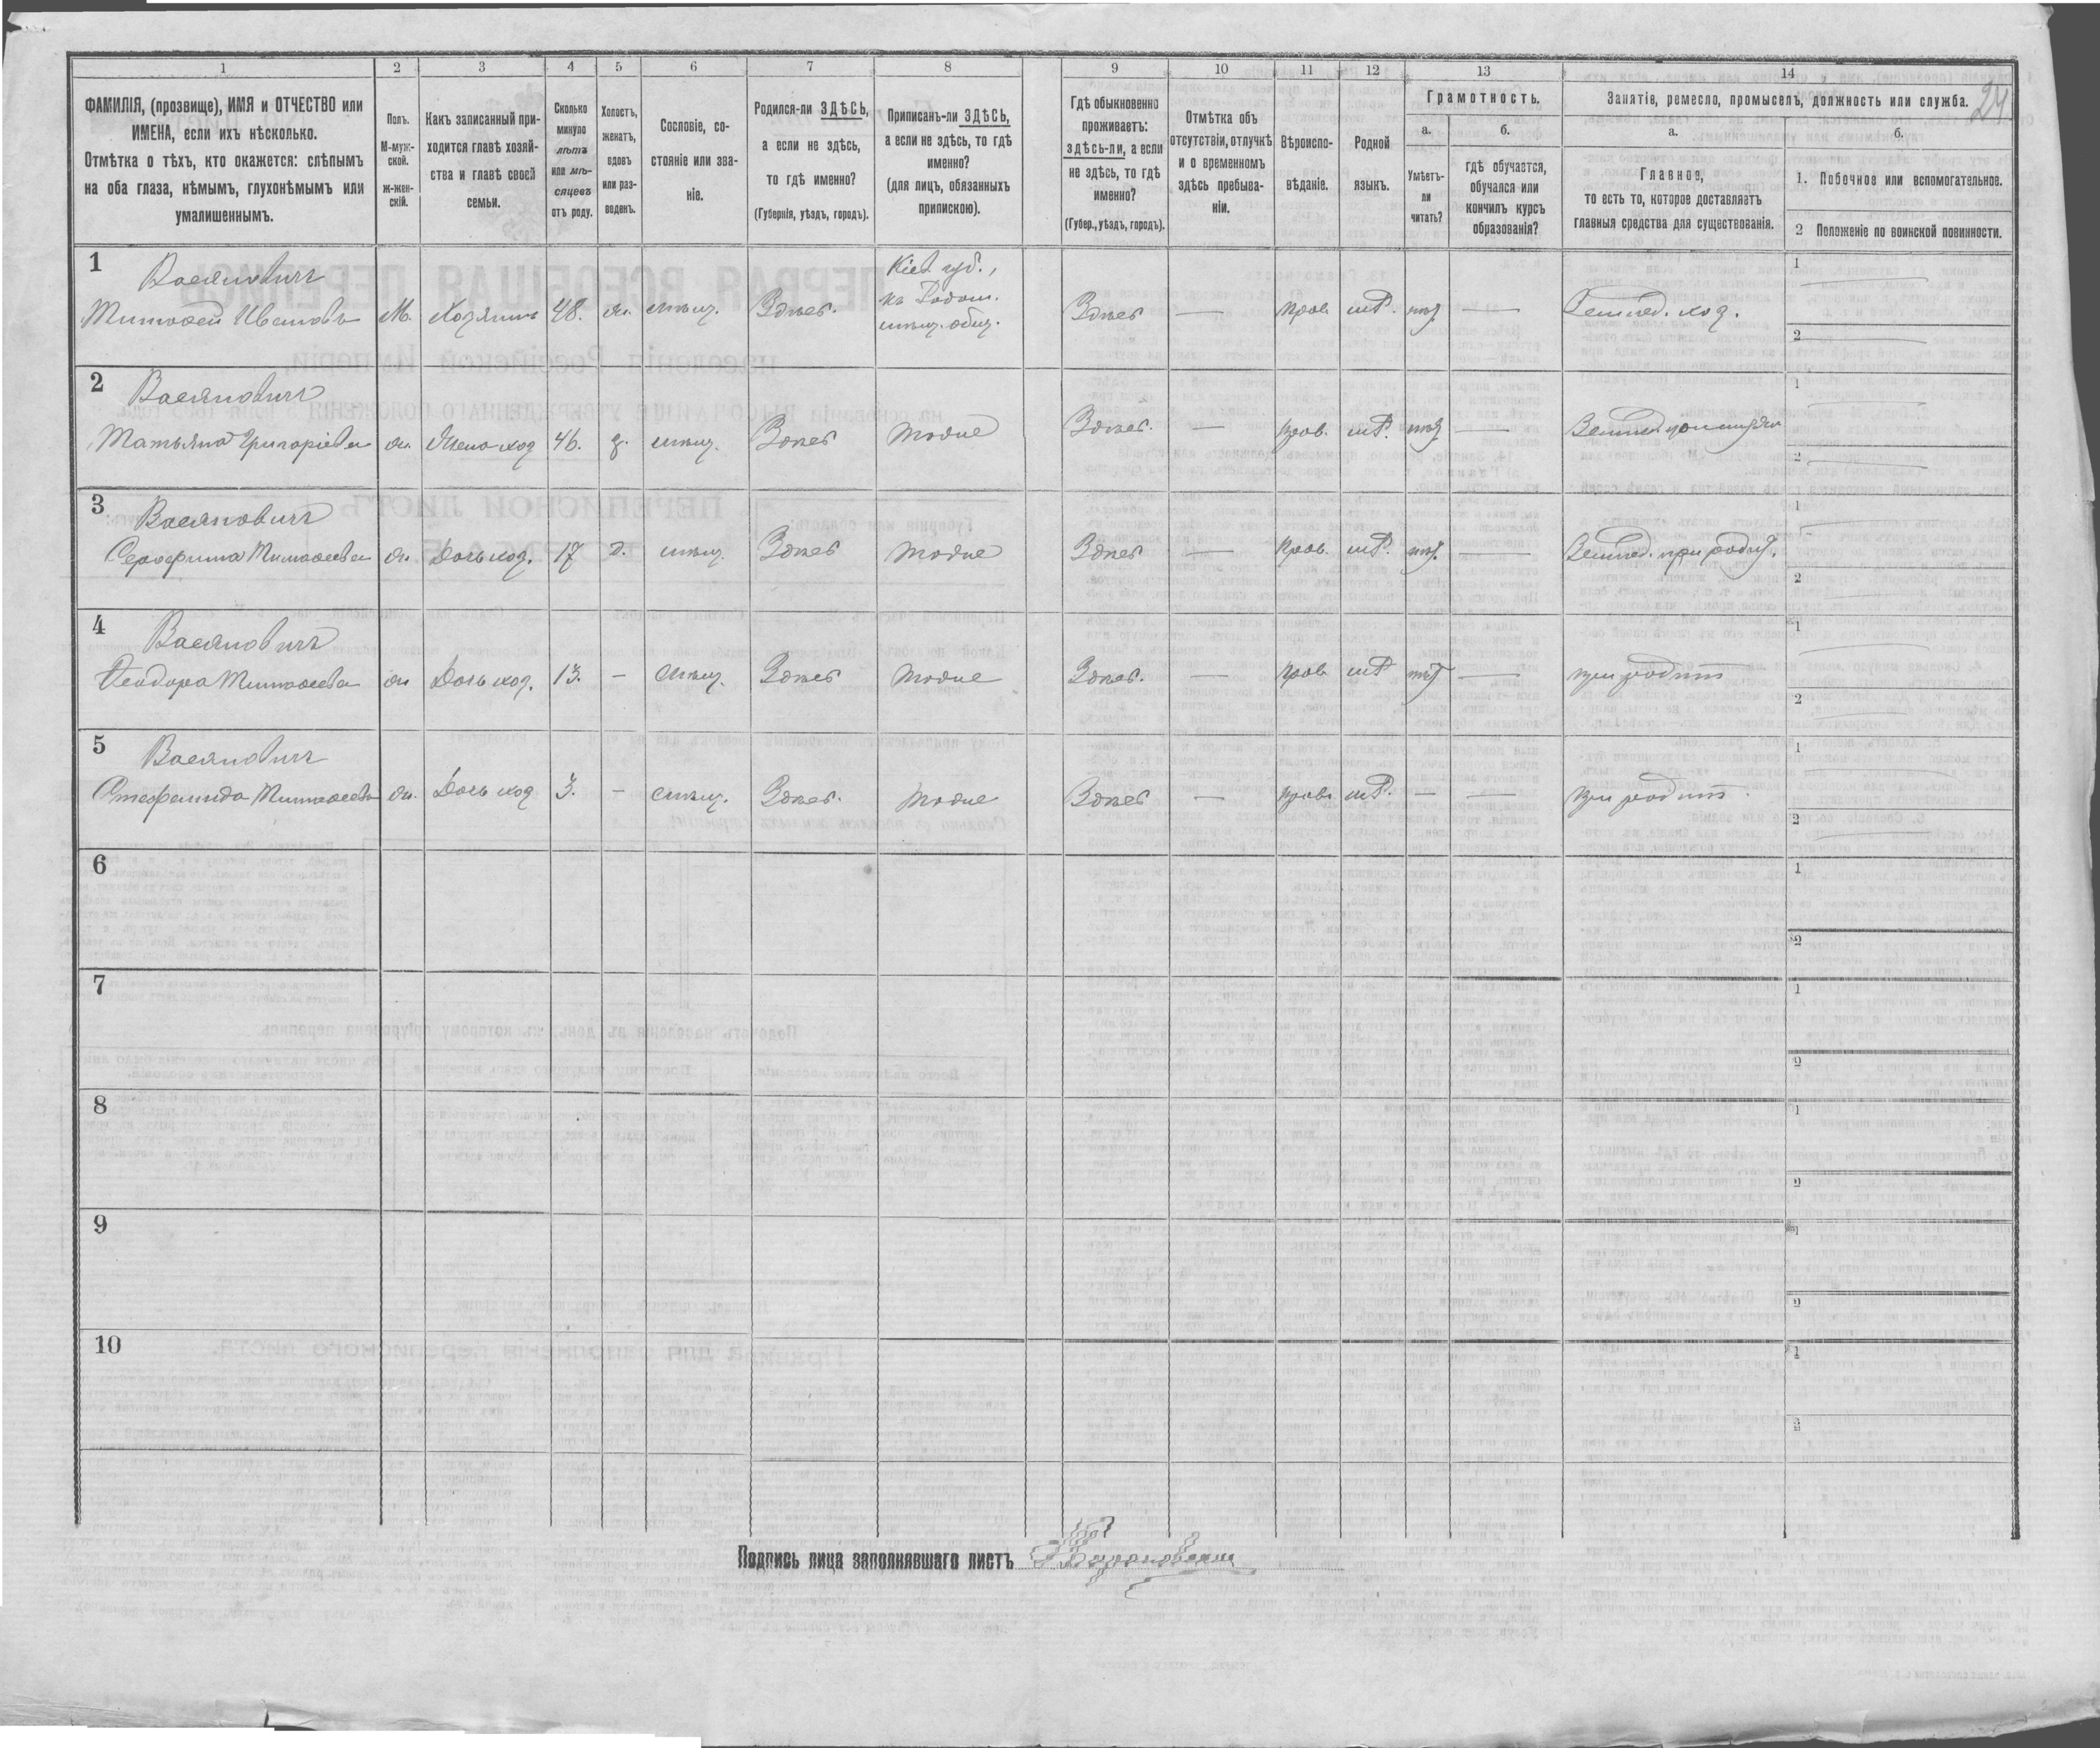 24.
1 2 3 4 5 6 7 8 9 10 11 12 13 14
ФАМИЛІЯ, (прозвище), ИМЯ и ОТЧЕСТВО или
ИМЕНА, если ихъ нѣсколько.
Отмѣтка о тѣхъ, кто окажется: слѣпымъ
на оба глаза, нѣмымъ, глухонѣмымъ или
умалишеннымъ.
Полъ.
М-муж-
ской.
ж-жен-
скій.
Какъ записанный при-
ходится главѣ хозяй-
ства и главѣ своей
семьи.
Сколько
минуло
лѣтъ
или мѣ-
сяцевъ
отъ роду.
Холостъ,
женатъ,
вдовъ
или раз-
веденъ.
Сословіе, со-
стояніе или зва-
ніе.
Родился-ли ЗДѢСЬ,
а если не здѣсь,
то гдѣ именно?
(Губернія, уѣздъ, городъ).
Приписанъ-ли ЗДѢСЬ,
а если не здѣсь, то гдѣ
именно?
(для лицъ, обязанныхъ
припискою).
Гдѣ обыкновенно
проживаетъ:
здѣсь-ли, а если
не здѣсь, то гдѣ
именно?
(Губер., уѣздъ, городъ).
Отмѣтка объ
отсутствіи, отлучкѣ
и о временномъ
здѣсь пребыва-
ніи.
Вѣроиспо-
вѣданіе.
Родной
языкъ.
Грамотность.
а.
Умѣетъ-
ли
читать?
б.
гдѣ обучается,
обучался или
кончилъ курсъ
образованія?
Занятіе, ремесло, промыселъ, должность или служба.
а.
Главное,
то есть то, которое доставляетъ
главныя средства для существованія.
б.
1. Побочное или вспомогательное.
2 Положеніе по воинской повинности.
1
Васяновичъ
Тимофей Ивановъ М. Хозяинъ 48. ж. мѣщ. Здѣсь.
Кіев. губ.,
къ Радом.
мѣщ. общ.
Здѣсь — прав. — Землед. хоз.
1
2
2
Васяновичъ
Татьяна Григорієва ж. Жена хоз 46. з. мѣщ. Здѣсь Тоже Здѣсь. — прав. —
1
2
3
Васяновичъ
Серафима Тимофеева ж. Дочь хоз. 17 д. мѣщ. Здѣсь Тоже Здѣсь — прав. — Землед. при родит.
1
2
4
Васяновичъ
Феодора Тимофеева ж. Дочь хоз. 13. — мѣщ. Здѣсь Тоже Здѣсь. — прав. — при родит
1
2
5
Васяновичъ
Стефанида Тимофеева ж. Дочь хоз 3. — мѣщ. Здѣсь. Тоже Здѣсь — прав. — — при родит.
1
2
6
1
2
7
1
2
8
1
2
9
1
2
10
1
2
Подпись лица заполнявшаго листъ